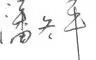 潘冬平